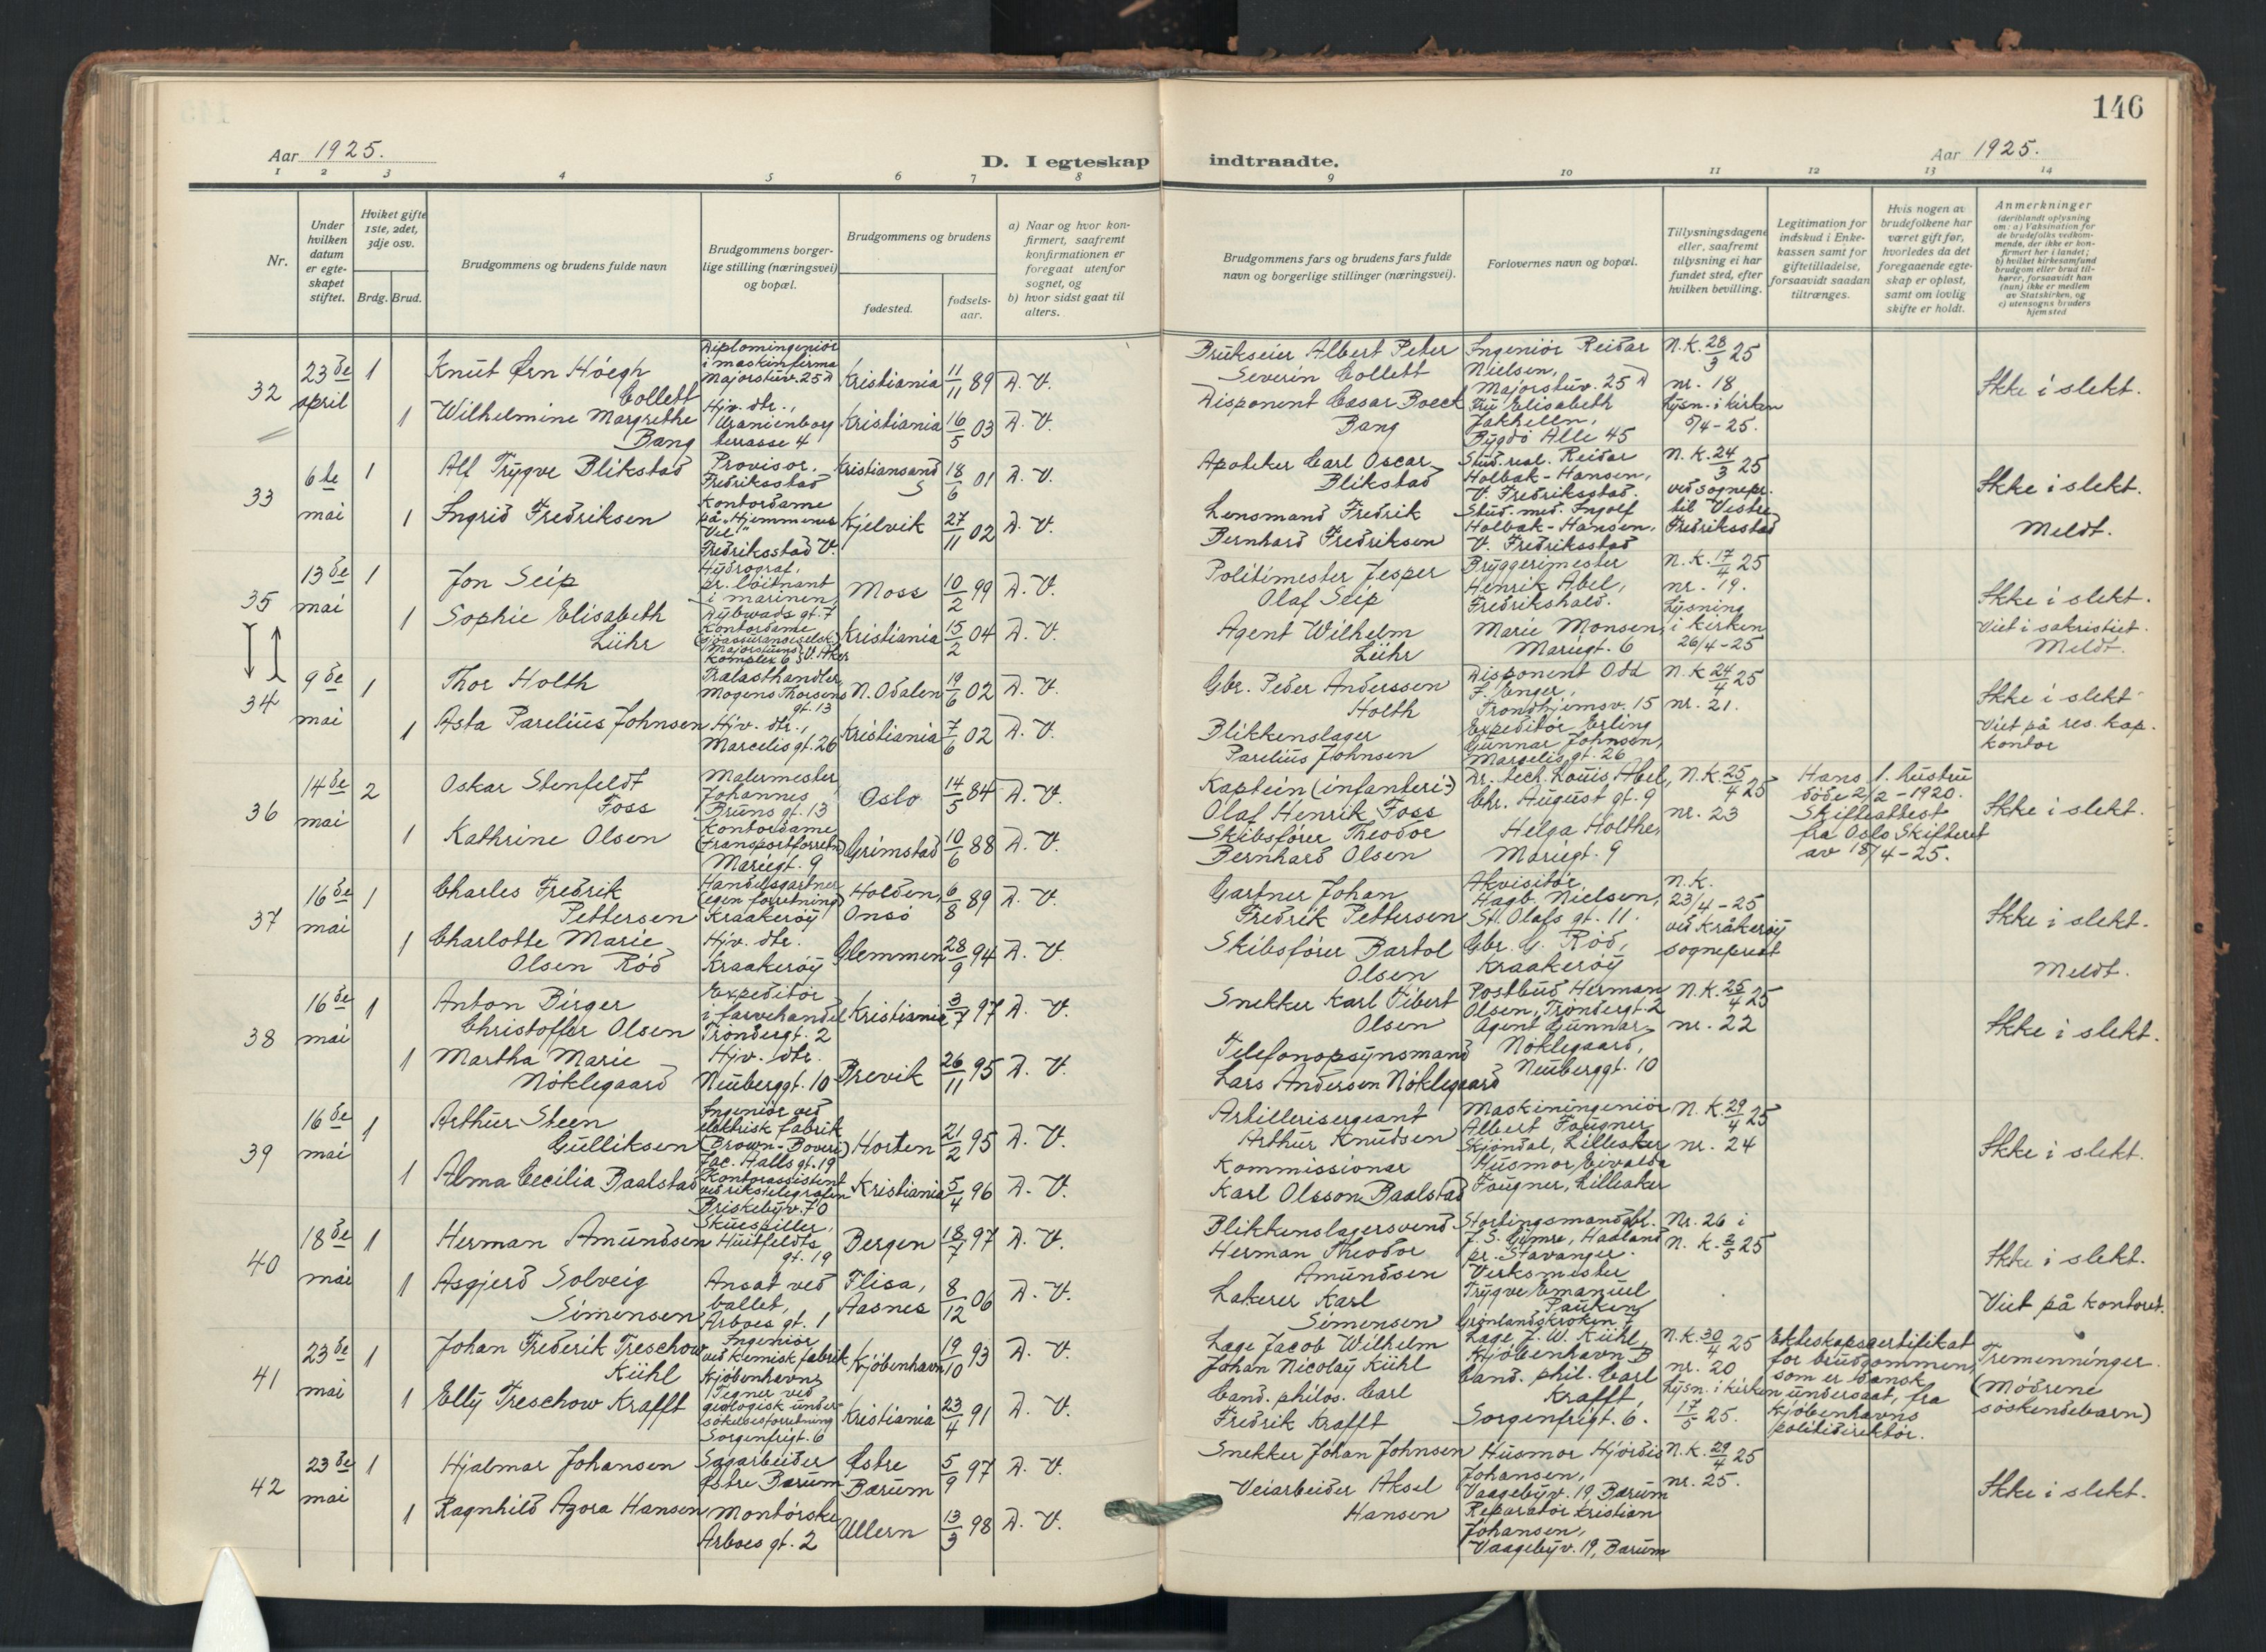 146
Aar 1925.
D. I egteskap indtraadte.
Aar 1925.
1 2 3 4 5 6 7 8 9 10 11 12 13 14
Nr.
Under hvilken datum er egte-skapet stiftet.
Hviket gifte 1ste, 2det, 3dje osv.
Brdg. Brud.
Brudgommens og brudens fulde navn
Brudgommens borger-lige stilling (næringsvei) og bopæl.
Brudgommens og brudens
fødested.
fødsels-aar.
a) Naar og hvor kon-firmert, saafremt konfirmationen er foregaat utenfor sognet, og
b) hvor sidst gaat til alters.
Brudgommens fars og brudens fars fulde navn og borgerlige stillinger (næringsvei).
Forlovernes navn og bopæl.
Tillysningsdagene eller, saafremt tillysning ei har fundet sted, efter hvilken bevilling.
Legitimation for indskud i Enke-kassen samt for giftetilladelse, forsaavidt saadan tiltrænges.
Hvis nogen av brudefolkene har været gift før, hvorledes da det foregaaende egte-skap er opløst, samt om lovlig skifte er holdt.
Anmerkninger
(deriblandt oplysning om: a) Vaksination for de brudefolks vedkom-mende, der ikke er kon-firmert her i landet; b) hvilket kirkesamfund brudgom eller brud til-hører, forsaavidt han (hun) ikke er medlem av Statskirken, og c) utensogns bruders hjemsted
32
23de april
1
Knut Ørn Höegh Collett
Diplomingeniör i maskinfirma Majorstuv. 25 A
Kristiania
11/11 89
D. V.
Brukseier Albert Peter Severin Collett
Ingeniör Reidar Nielsen, Majorstuv. 25 A
N.K. 28/3 25
nr. 18
Lysn. i kirken 5/4-25.
Ikke i slekt.
1
Wilhelmine Margrethe Bang
Hjv. dtr., Uranienborg terrasse 4
Kristiania
16/5 03
D. V.
Disponent Cæsar Boeck Bang
Fru Elisabeth Jakhelln, Bygdö Allé 45
33
6te mai
1
Alf Trygve Blikstad
Provisor, Fredriksstad
Kristiansand S
18/6 01
D. V.
Apoteker Carl Oscar Blikstad
Stud. real. Reidar Holbak-Hansen, V. Fredriksstad.
N.K. 24/3 25
ved sognepr. til Vestre Fredriksstad
Ikke i slekt.
Meldt.
1
Ingrid Fredriksen
Kontordame på "Hjemmenes Vel" Fredriksstad V.
Kjelvik
27/11 02
D. V.
Lensmand Fredrik Bernhard Fredriksen
Stud. med. Ingolf Holbak-Hansen, V. Fredriksstad
35
13de mai
1
Jon Seip
Hydrograf, pr. löitnant i marinen, Dybwads gt. 7
Moss
10/2 99
D. V.
Politimester Jesper Olaf Seip
Bryggerimester Henrik Abel, Fredrikshald.
N.K. 17/4 25
nr. 19.
Lysning i kirken 26/4-25
Ikke i slekt.
Viet i sakristiet.
Meldt.
1
Sophie Elisabeth Lühr
Kontordame (Sjöassuranceselsk.) Majorstuens Komplex 6, V. Aker
Kristiania
15/2 04
D. V.
Agent Wilhelm Lühr
Marie Monsen, Mariegt. 6
34
9de mai
1
Thor Holth
Trælasthandler Mogens Thorsens gt. 13
N. Odalen
19/6 02
D. V.
Gbr. Peder Anderssen Holth
Disponent Odd F. Enger, Trondhjemsv. 15
N.K. 24/4 25
nr. 21.
Ikke i slekt
Viet på res. kap. kontor
1
Asta Parelius Johnsen
Hjv. dtr., Marcelis gt. 26
Kristiania
7/6 02
D. V.
Blikkenslager Parelius Johnsen
Expeditör Erling Gunnar Johnsen, Marselis gt. 26
36
14de mai
2
Oskar Stenfeldt Foss
Malermester, Johannes Bruns gt. 13
Oslo
14/5 84
D. V.
Kaptein (infanteri) Olaf Henrik Foss
Dr. tech. Louis Abel, Chr. August gt. 9
N.K. 25/4 25
nr. 23
Hans 1. hustru döde 2/2-1920. Skifteattest fra Oslo Skifteret av 18/4-25.
Ikke i slekt.
1
Kathrine Olsen
Kontordame (transportforretn.) Mariegt. 9
Grimstad
10/6 88
D. V.
Skibsförer Theodor Bernhard Olsen
Helga Holthe, Mariegt. 9
37
16de mai
1
Charles Fredrik Pettersen
Handelsgartner (egen forretning) Kraakeröy
Holden, Onsö
6/8 89
D. V.
Gartner Johan Fredrik Pettersen
Akvisitör Hagb. Nielsen, St. Olafs gt. 11.
N.K. 23/4-25
ved Kråkeröy sogneprest
Ikke i slekt.
Meldt.
1
Charlotte Marie Olsen Röd
Hjv. dtr. Kraakeröy
Glemmen
28/9 94
D. V.
Skibsförer Bartol Olsen
Gbr. G. Röd, Kraakeröy
38
16de mai
1
Anton Birger Christoffer Olsen
Expeditör i farvehandel Tröndergt. 2
Kristiania
3/7 97
D. V.
Snekker Karl Fibert Olsen
Postbud Herman Olsen, Tröndergt. 2
N.K. 25/4 25
nr. 22
Ikke i slekt.
1
Martha Marie Nöklegaard
Hjv. dtr. Neuberggt. 10
Brevik
26/11 95
D. V.
Telefonopsynsmand Lars Andersen Nöklegaard
Agent Gunnar Nöklegaard, Neuberggt. 10
39
16de mai
1
Arthur Steen Gulliksen
Ingeniör ved elektrisk fabrik (Brown-Boveri) Jac. Halls gt. 19
Horten
21/2 95
D. V.
Artillerisergeant Arthur Knudsen
Maskiningeniör Albert Fougner Skjöndal, Lilleaker
N.K. 29/4 25
nr. 24
Ikke i slekt.
1
Alma Cecilia Baalstad
Kontorassistent ved rikstelegrafen Briskebyv. 70
Kristiania
5/4 96
D. V.
Kommissionær Karl Olsson Baalstad
Husmor Eivalda Fougner, Lilleaker
40
18de mai
1
Herman Amundsen
Skuespiller, Huitfeldts gt. 19
Bergen
18/7 97
D. V.
Blikkenslagersvend Herman Theodor Amundsen
Stortingsmand gbr. J. S. Gimre, Haaland pr. Stavanger.
Nr. 26 i N.K. 2/5 25
Ikke i slekt.
Viet på kontoret.
1
Asgjerd Solveig Simensen
Ansat ved ballet, Arboes gt. 1
Flisa, Aasnes
8/12 06
D. V.
Lakerer Karl Simensen
Verksmester Trygve Emanuel Grönlandskroken 7
41
23de mai
1
Johan Frederik Treschow Kühl
Ingeniör ved kemisk fabrik Kjöbenhavn
Kjöbenhavn
19/10 93
D. V.
Læge Jacob Wilhelm Johan Nicolay Kühl
Læge J. W. Kühl, Kjöbenhavn B
N.K. 30/4 25
nr. 20
Lysn. i kirken 17/5 25.
Ekteskapscertifikat for brudgommen, som er dansk undersaat, fra Kjöbenhavns politidirektör.
Tremenninger (Mödrene söskendebarn)
1
Elly Treschow Krafft
Tegner ved geologisk under-sökelsesforretning Sorgenfrigt. 6
Kristiania
23/4 91
D. V.
Cand. philos. Carl Fredrik Krafft
Cand. phil. Carl Krafft, Sorgenfrigt. 6.
42
23de mai
1
Hjalmar Johansen
Sagarbeider Østre Bærum
Østre Bærum
5/9 97
D. V.
Snekker Johan Johnsen
Husmor Hjördis Johansen, Vaagebyv. 19, Bærum
N.K. 29/4 25
nr. 25.
Ikke i slekt.
1
Ragnhild Azora Hansen
Montörske Arboes gt. 2
Ullern
13/3 98
D. V.
Veiarbeider Aksel Hansen
Reparatör Kristian Johansen, Vaagebyv. 19, Bærum